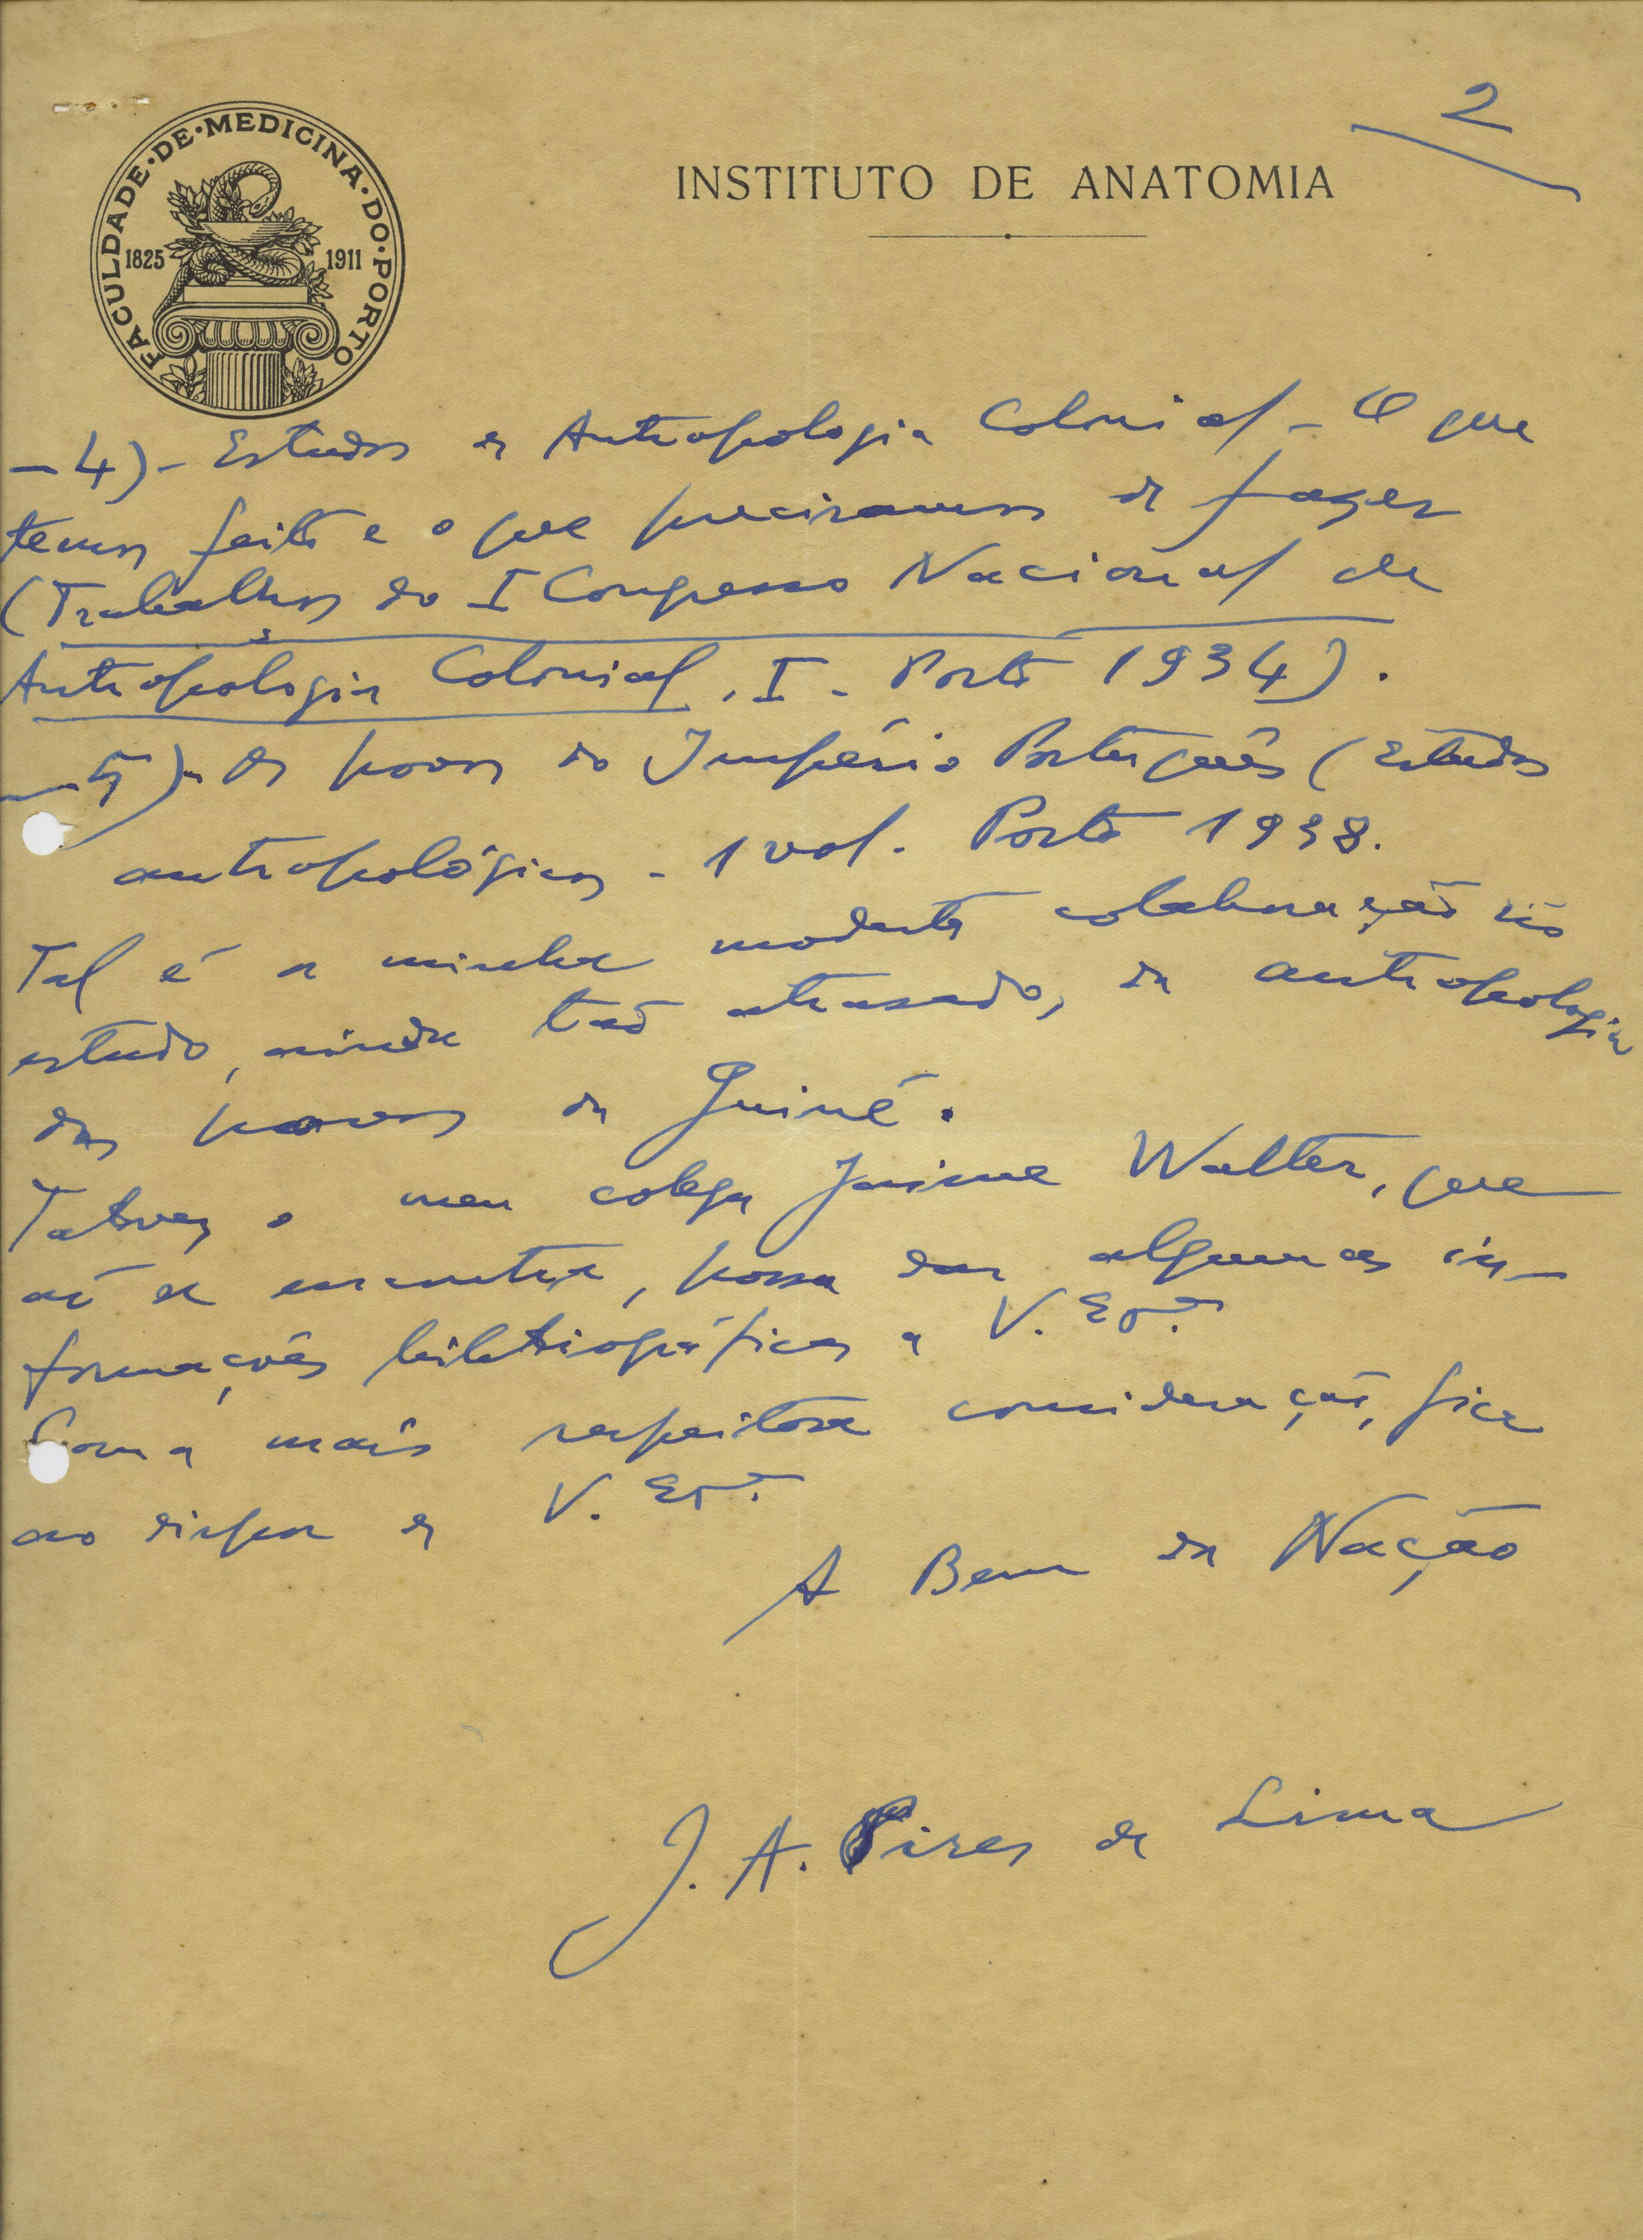 2
FACULDADE·DE·MEDICINA·DO·PORTO
1825 1911
INSTITUTO DE ANATOMIA
—4)- Estudos de Antropologia Colonial - O que
temos feito e o que precisamos de fazer
(Trabalhos do I Congresso Nacional de
Antropologia Colonial, I - Porto 1934).
—5)- Os povos do Império Português (Estudos
antropológicos - 1 vol. Porto 1938.
Tal é a minha modesta colaboração no
estudo, ainda tão atrasado, da antropologia
dos povos da Guiné.
Talvez o meu colega Jaime Walter, que
aí se encontra, possa dar algumas in-
formações bibliográficas a V. Exª.
Com a mais respeitosa consideração, fica
ao dispor de V. Exª.
A Bem da Nação
J. A. Pires de Lima